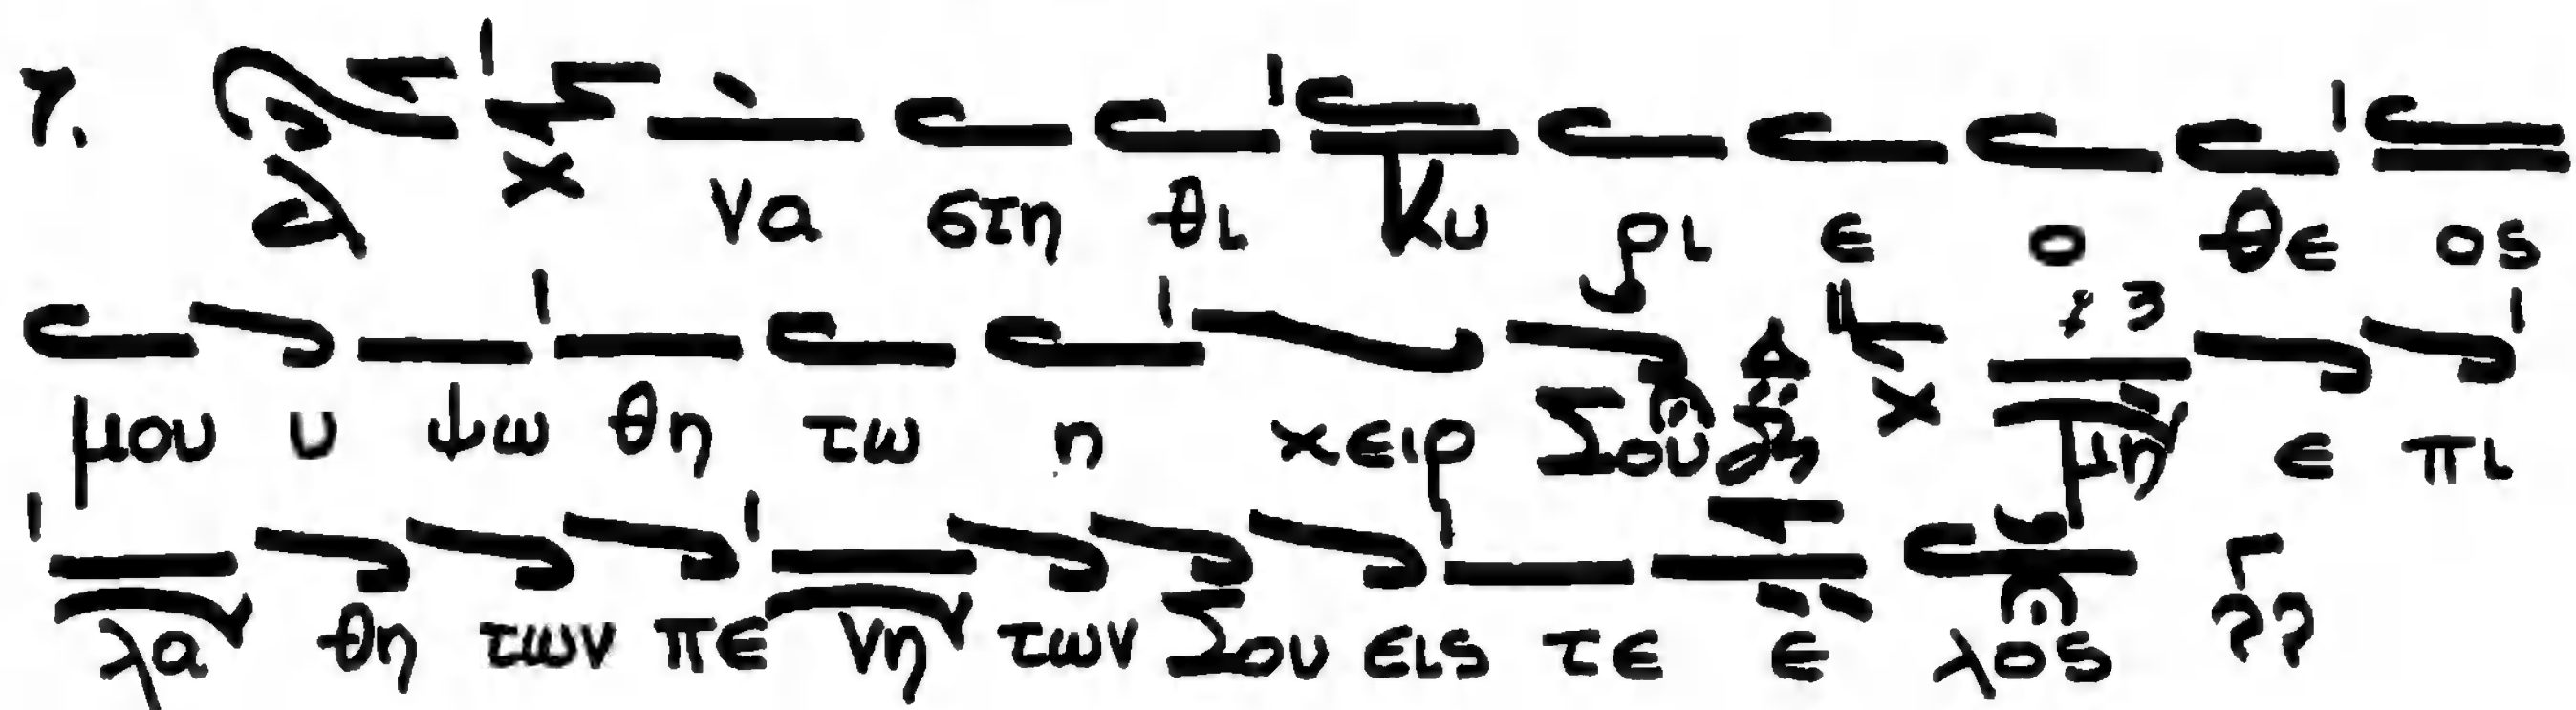 7. α να στη θι Κυ ρι ε ο θε ος
μου υ ψω θη τω η χειρ Σου μη ε πι
λα θη των πε νη των Σου εις τε ε λος